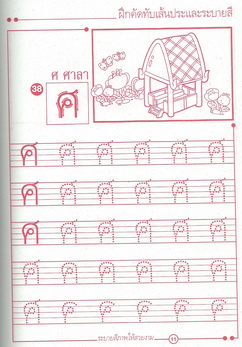 ฝึกคัดทับเส้นประและระบายสี
ศ ศาลา
38
ศ
ศ ศ ศ ศ ศ ศ
ศ ศ ศ ศ ศ ศ
ศ ศ ศ ศ ศ ศ
ศ ศ ศ ศ ศ ศ
ศ ศ ศ ศ ศ ศ
ระบายสีภาพให้สวยงาม
11